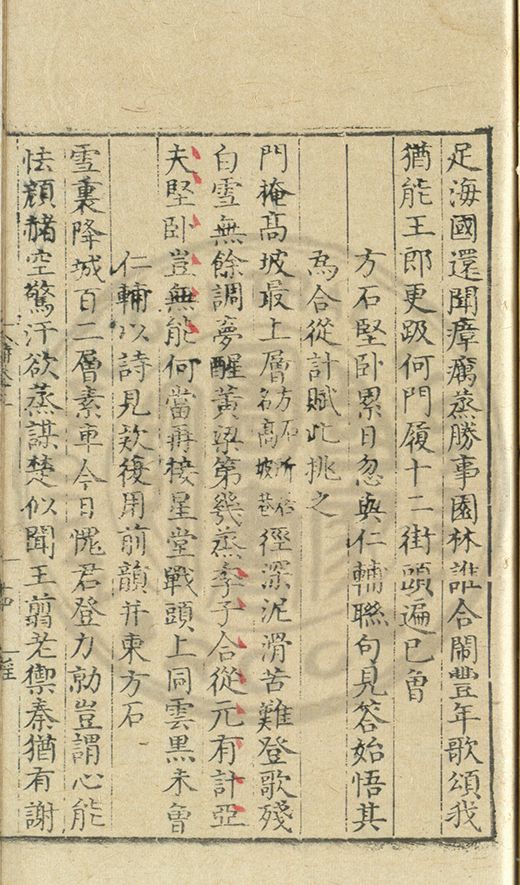 足海國還聞瘴癘蒸勝事園林誰合鬧豐年歌頌我
猶能王郎更趿何門履十二街頭遍已曾
方石堅卧累日忽與仁輔聯句見答始悟其
為合從計賦此挑之
門掩髙坡最上層方石所居名髙坡巷徑深泥滑苦難登歌殘
白雪無餘調夢醒黃粱第幾蒸李子合從元有計亞
夫堅卧豈無能何當再接星堂戰頭上同雲黑未曾
仁輔以詩見欵復用前韻并柬方石
雪裏降城百二層素車今日愧君登力勍豈謂心能
怯顏赭空驚汗欲蒸謀楚似聞王翦老禦秦猶有謝